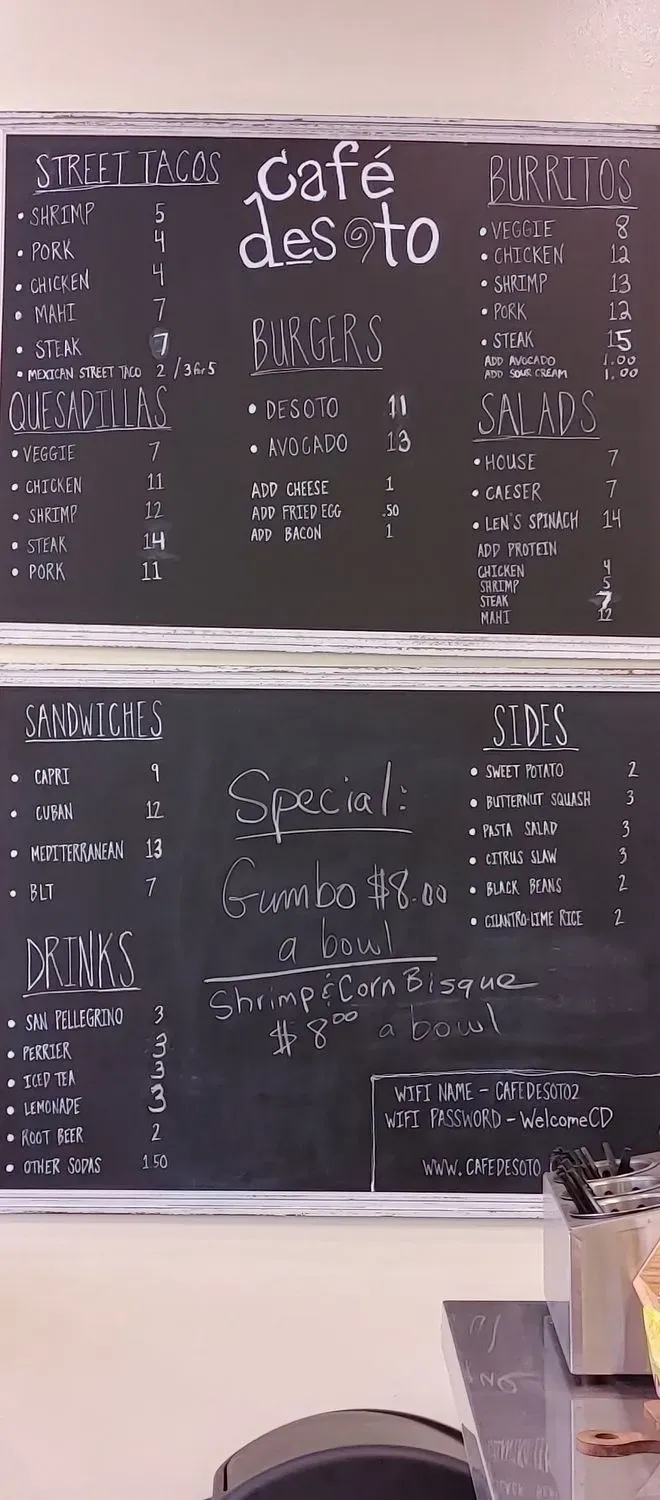 café
desoto
STREET TACOS
• SHRIMP 5
• PORK 4
• CHICKEN 4
• MAHI 7
• STEAK 7
• MEXICAN STREET TACO 2 / 3 for 5
QUESADILLAS
• VEGGIE 7
• CHICKEN 11
• SHRIMP 12
• STEAK 14
• PORK 11
BURGERS
• DESOTO 11
• AVOCADO 13
ADD CHEESE 1
ADD FRIED EGG .50
ADD BACON 1
BURRITOS
• VEGGIE 8
• CHICKEN 12
• SHRIMP 13
• PORK 12
• STEAK 15
ADD AVOCADO 1.00
ADD SOUR CREAM 1.00
SALADS
• HOUSE 7
• CAESER 7
• LEN'S SPINACH 14
ADD PROTEIN
CHICKEN 4
SHRIMP 5
STEAK 7
MAHI 12
SANDWICHES
• CAPRI 9
• CUBAN 12
• MEDITERRANEAN 13
• BLT 7
DRINKS
• SAN PELLEGRINO 3
• PERRIER 3
• ICED TEA 3
• LEMONADE 3
• ROOT BEER 2
• OTHER SODAS 1.50
Special:
Gumbo $8.00
a bowl
Shrimp & Corn Bisque
$8.00 a bowl
SIDES
• SWEET POTATO 2
• BUTTERNUT SQUASH 3
• PASTA SALAD 3
• CITRUS SLAW 3
• BLACK BEANS 2
• CILANTRO-LIME RICE 2
WIFI NAME - CAFEDESOTO2
WIFI PASSWORD - WelcomeCD
WWW.CAFEDESOTO.